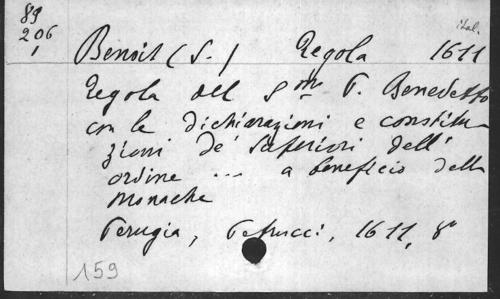 89
206
1
ital.
Benoit (S.) Regola 1611
Regola del Smo P. Benedetto
con le dichiarazioni e constitu-
zioni de' superiori dell'
ordine ... a beneficio delle
monache
Perugia, Petrucci, 1611, 8º
159